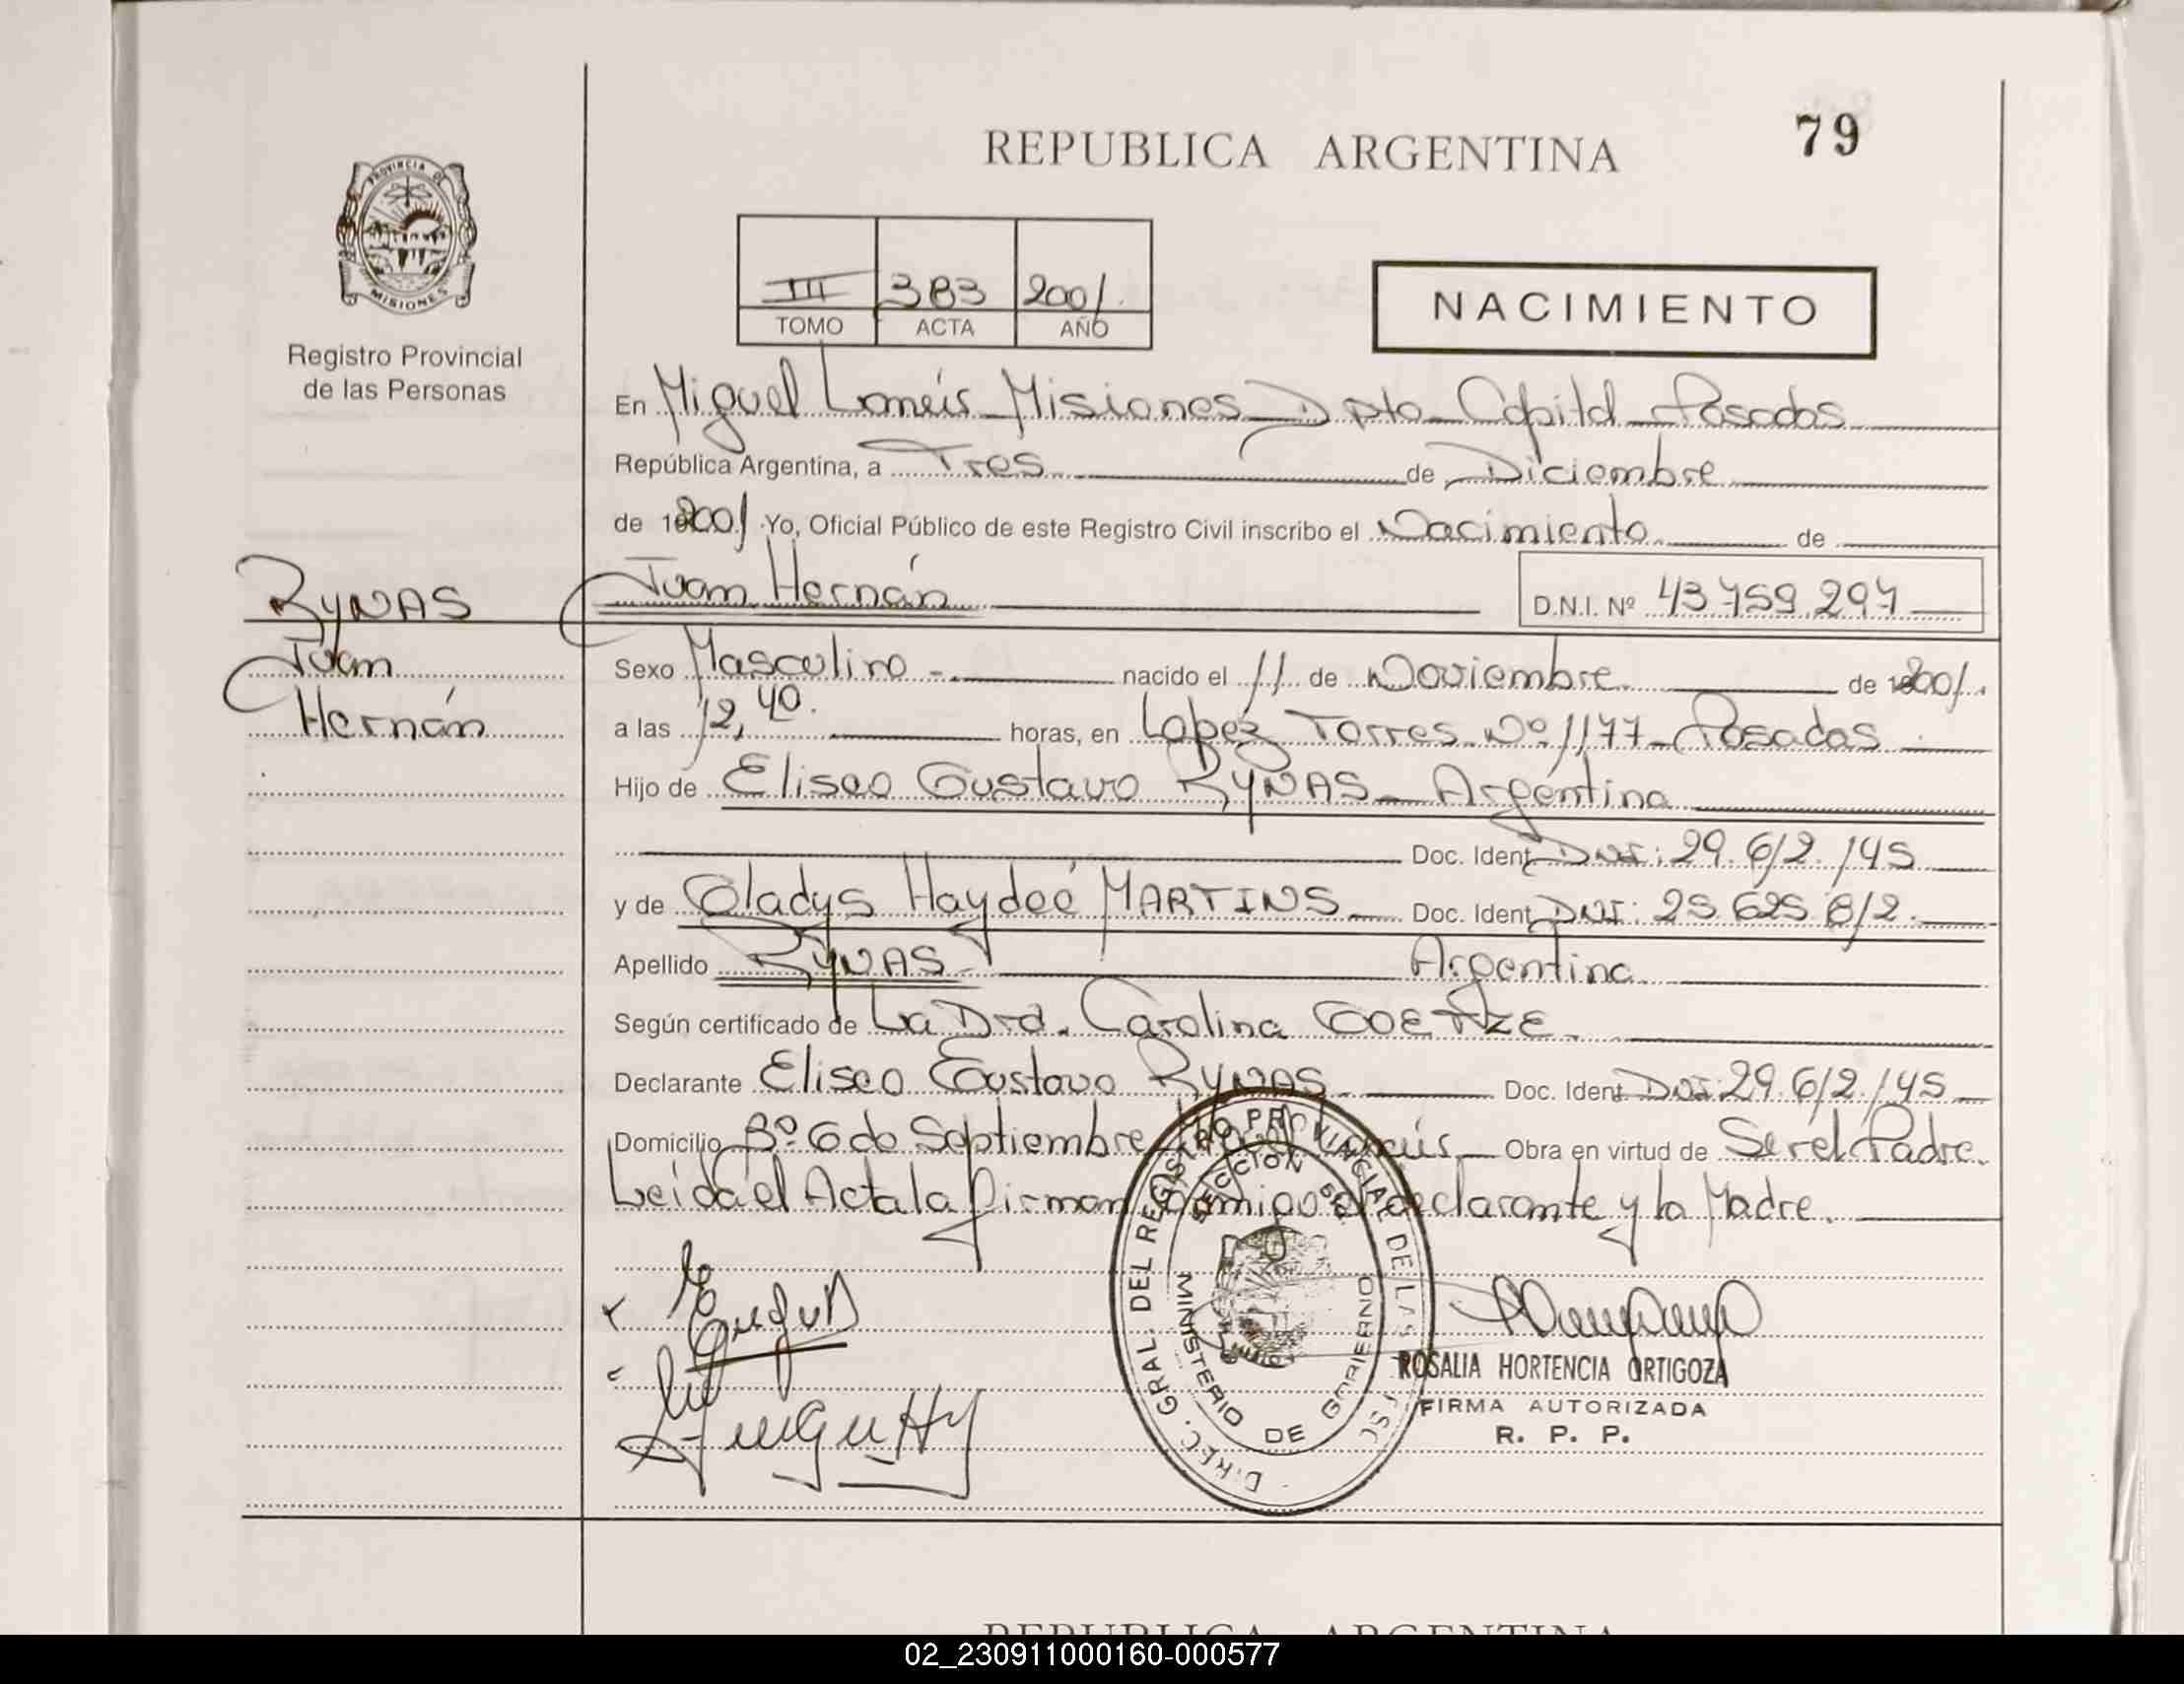 79
REPUBLICA ARGENTINA
PROVINCIA DE
MISIONES
Registro Provincial
de las Personas
III 383 2001.
TOMO ACTA AÑO
NACIMIENTO
En Miguel Lanús Misiones Dpto Capital Posadas
República Argentina, a Tres de Diciembre
de 2001 Yo, Oficial Público de este Registro Civil inscribo el Nacimiento de
RYNAS
Juan Hernán
D.N.I. Nº 43 759 297
Juan
Hernán
Sexo Masculino - nacido el 11 de Noviembre de 2001.
a las 12,40. horas, en Lopéz Torres Nº 1177 Posadas
Hijo de Eliseo Gustavo RYNAS Argentina
Doc. Ident DNI: 29.612.145
y de Gladys Haydeé MARTINS Doc. Ident DNI: 25 625 812.
Apellido RYNAS Argentina
Según certificado de La Dra. Carolina GOETZE
Declarante Eliseo Gustavo RYNAS Doc. Ident DNI: 29.612.145
Domicilio Bº 6 de Septiembre Miguel Lanús Obra en virtud de Ser el Padre.
Leida el Acta la firman conmigo el declarante y la Madre.
DIREC. GRAL. DEL REGISTRO PROVINCIAL DE LAS
MINISTERIO DE GOBIERNO
ROSALIA HORTENCIA ORTIGOZA
FIRMA AUTORIZADA
R. P. P.
REPUBLICA ARGENTINA
02_230911000160-000577